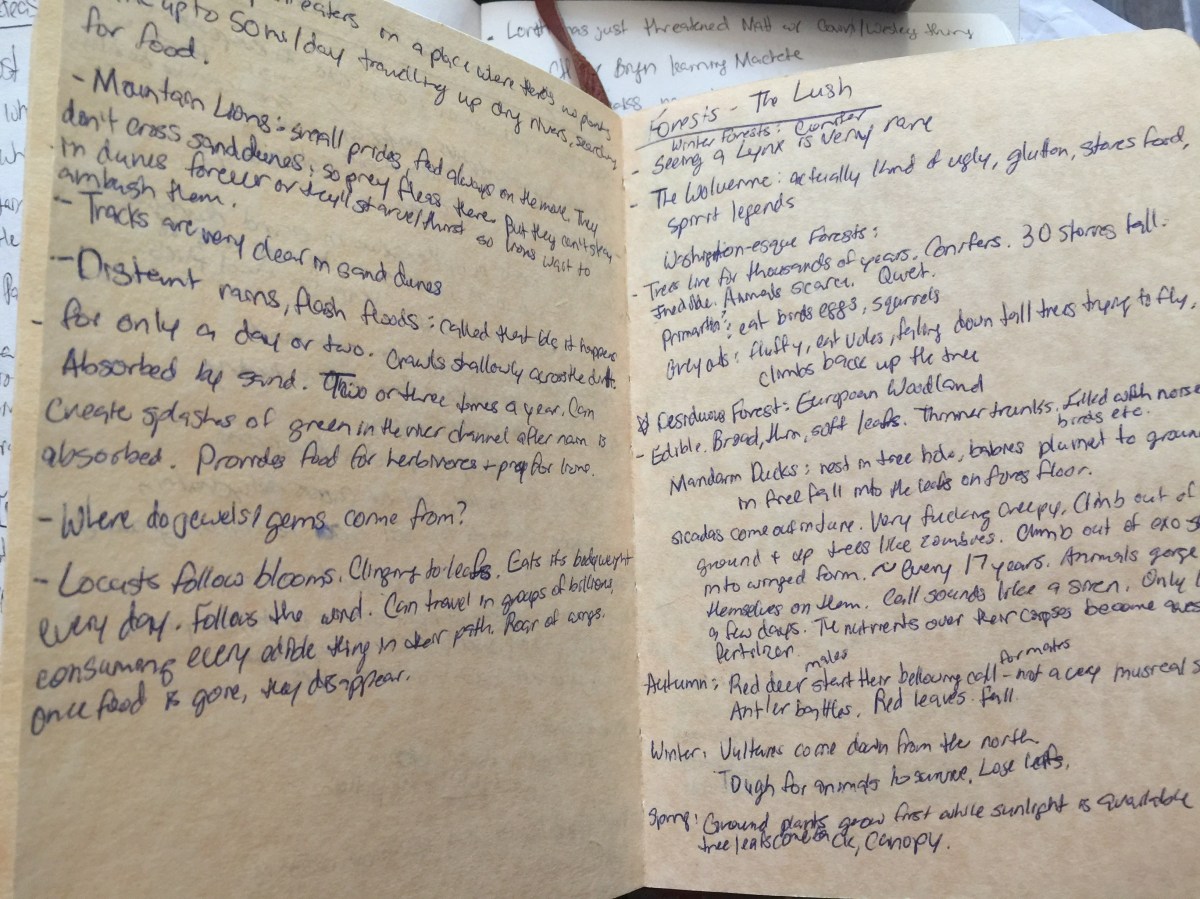 eaters in a place where there's no plants
up to 50 mi/day travelling up dry rivers, searching
for food.
- Mountain Lions: small prides, food always on the move. They
don't cross sand dunes, so prey flees there. But they can't stay
in dunes forever or they'll starve/thirst so lions wait to
ambush them.
- Tracks are very clear in sand dunes
- Distent rains, flash floods: called that b/c it happens
- for only a day or two. Crawls shallowly across the dirt.
Absorbed by sand. Two or three times a year. Can
create splashes of green in the river channel after rain is
absorbed. Provides food for herbivores + prey for lions.
- Where do jewels/gems come from?
- Locusts follow blooms. Clinging to leafs. Eats its bodyweight
every day. Follows the wind. Can travel in groups of billions,
consuming every edible thing in their path. Roar of wings.
Once food is gone, they disappear.
- has just threatened Matt w/ thing
Bryn learning Machete
Forests - The Lush
Winter Forests: Conifer
- Seeing a Lynx is very rare
- The Wolverine: actually kind of ugly, glutton, stores food,
spirit legends
Washington-esque Forests:
- Trees live for thousands of years. Conifers. 30 stories tall.
Inedible. Animals scarce. Quiet.
eat birds eggs, squirrels
Grey owls: fluffy, eat voles, falling down tall trees trying to fly,
climbs back up the tree
Residuous Forest: European Woodland
- Edible. Broad, thin, soft leafs. Thinner trunks. Filled with noise
birds etc.
Mandarin Ducks: nest in tree hole, babies plumet to ground
in free fall into the leafs on forest floor.
sicadas come out in June. Very fucking creepy. Climb out of
ground + up trees like zombies. Climb out of exo
into winged form. ~ every 17 years. Animals gorge
themselves on them. Call sounds like a siren. Only
a few days. The nutrients over their corpses become
fertilizer.
Autumn: Red deer males start their bellowing call for mates - not a very musical
Antler battles. Red leaves fall.
Winter: Vultures come down from the north.
Tough for animals to survive. Lose leafs.
Spring: Ground plants grow first while sunlight is available
tree leafs come back, canopy.